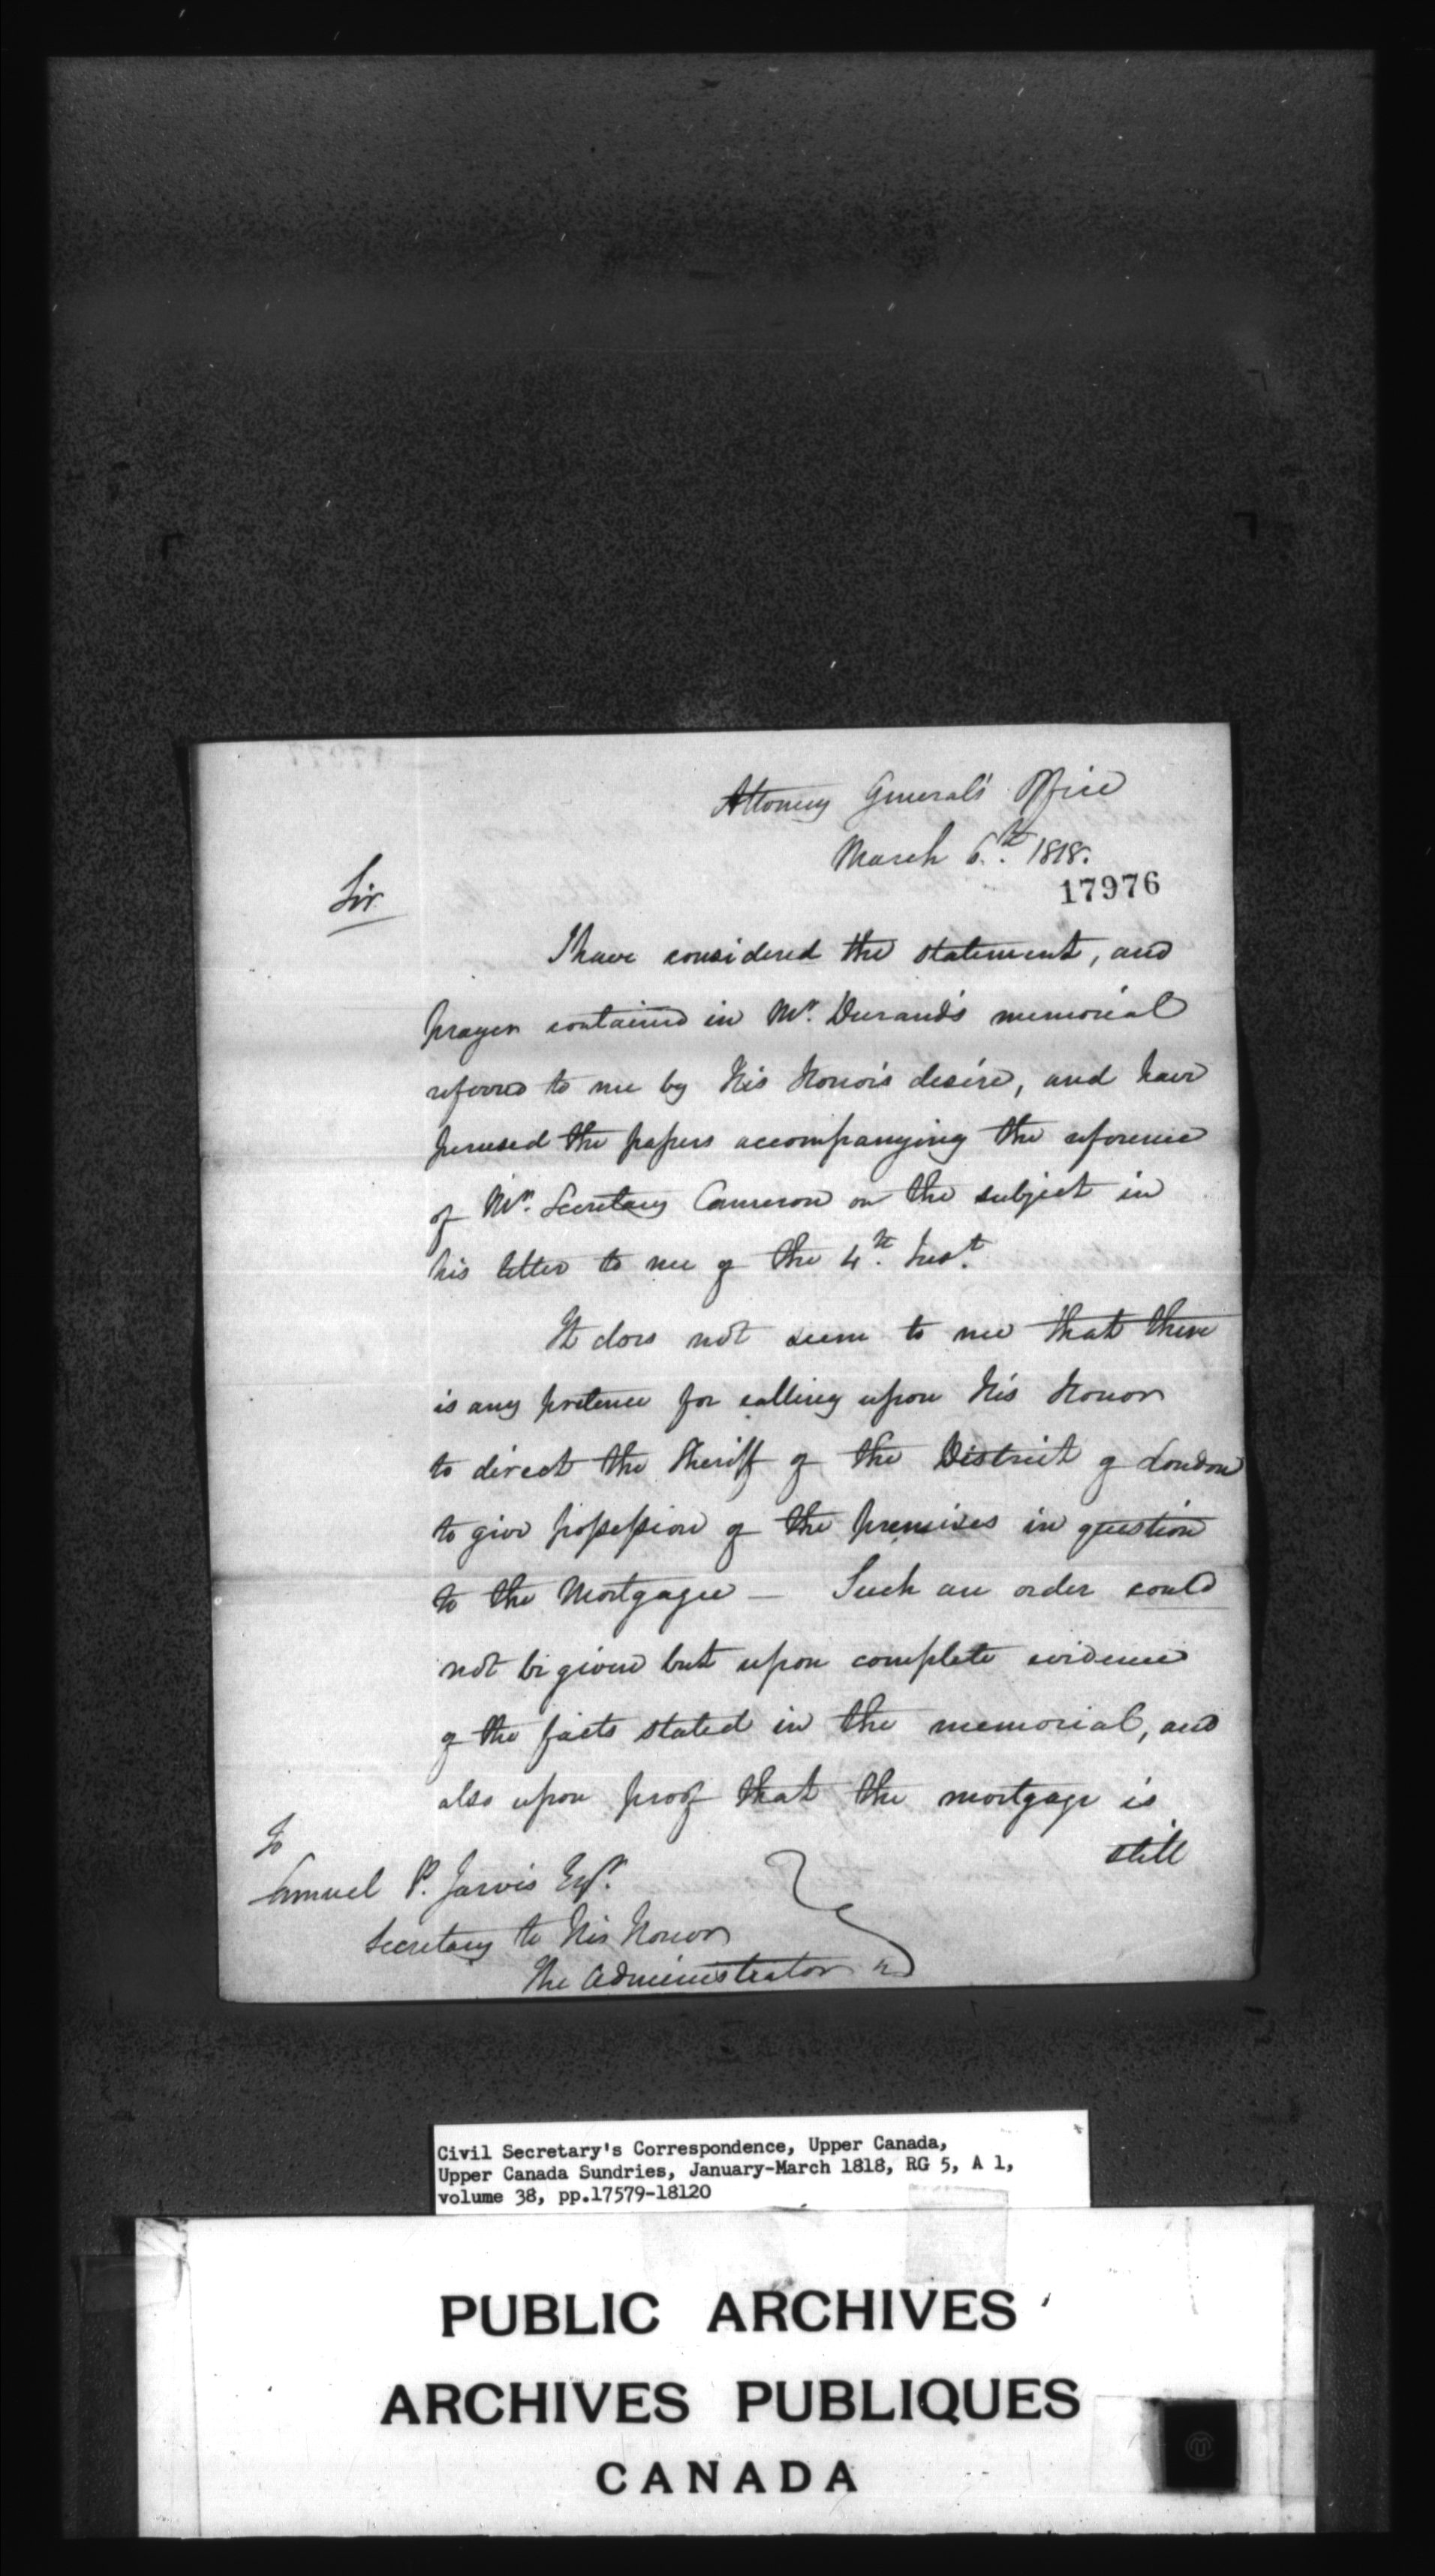 Attorney General's Office
March 6.th 1818.
17976
Sir
I have considered the statement, and
prayer contained in Mr. Durand's memorial
referred to me by His Honor's desire, and have
perused the papers accompanying the reference
of Mr. Secretary Cameron on the subject in
his letter to me of the 4.th Inst.
It does not seem to me that there
is any pretence for calling upon His Honor
to direct the Sheriff of the District of London
to give possession of the premises in question
to the Mortgagee — Such an order could
not be given but upon complete evidence
of the facts stated in the memorial, and
also upon proof that the mortgage is
still
To
Samuel P. Jarvis Esqr.
Secretary to His Honor
The Administrator
Civil Secretary's Correspondence, Upper Canada,
Upper Canada Sundries, January-March 1818, RG 5, A 1,
volume 38, pp.17579-18120
PUBLIC ARCHIVES
ARCHIVES PUBLIQUES
CANADA